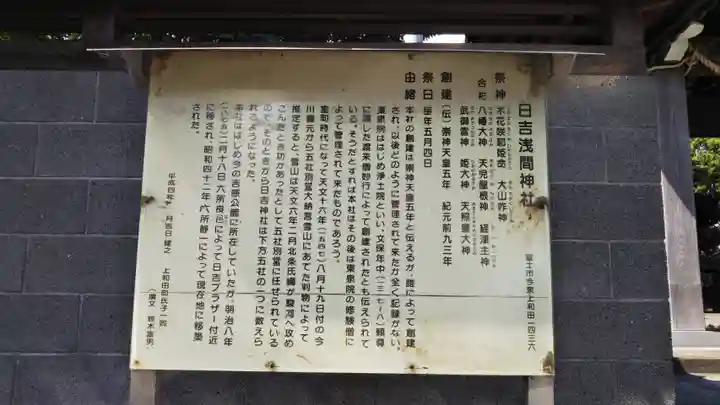 日吉浅間神社
富士市今泉上和田一四三六
祭神 木花咲耶姫命 大山咋神
合祀 八幡大神 天児屋根神 経津主神
武御雷神 姫大神 天照皇大神
創建 (伝)崇神天皇五年 紀元前九三年
祭日 毎年五月四日
由緒 本社の創建は崇神天皇五年と伝えるが、誰によって創建
され、以後どのように管理されて来たか全く記録がない。
東泉院ははじめ浄土院といい、文保年中(一三一七〜八)頼尊
に属した渡来僧妙行によって創建されたとも伝えられて
いる。そうだとすれば本社はその後は東泉院の修験僧に
よって管理されて来たものであろう。
室町時代になって天文十六年(一五四七)八月十九日付の今
川義元から五社別当大納言雪山にあてた判物によって
推定すると、雪山は天文六年二月北条氏綱が駿河へ攻め
こんだとき功があったとして五社別当に任ぜられている
ので、そのときから日吉神社は下方五社の一つに数えら
れるようになった。
本社ははじめ今の吉原公園に所在していたが、明治八年
(一八七五)二月十八日六所良邑によって日吉プラザー付近
に移され、昭和四十二年六所静一によって現在地に移築
された。
平成四年 月吉日建之 上和田町氏子一同
(撰文 鈴木富男)